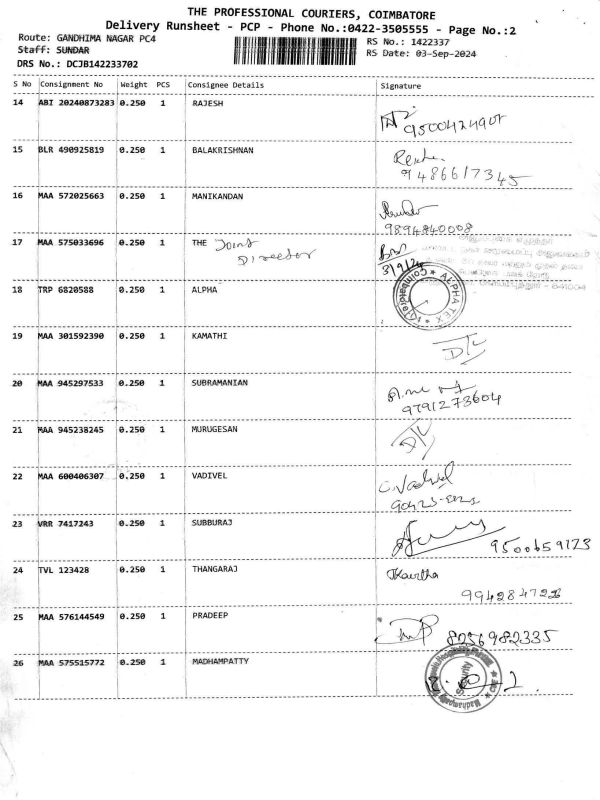 THE PROFESSIONAL COURIERS, COIMBATORE
Delivery Runsheet - PCP - Phone No.:0422-3505555 - Page No.:2
Route: GANDHIMA NAGAR PC4 RS No.: 1422337
Staff: SUNDAR RS Date: 03-Sep-2024
DRS No.: DCJB142233702
S No Consignment No Weight PCS Consignee Details Signature
14 ABI 20240873283 0.250 1 RAJESH
15 BLR 490925819 0.250 1 BALAKRISHNAN
9486617345
16 MAA 572025663 0.250 1 MANIKANDAN
9894840008
17 MAA 575033696 0.250 1 THE Joint
Director
3/9/24
18 TRP 6820588 0.250 1 ALPHA
ALPHA TEX
19 MAA 301592390 0.250 1 KAMATHI
D/L
20 MAA 945297533 0.250 1 SUBRAMANIAN
9791273604
21 MAA 945238245 0.250 1 MURUGESAN
D/L
22 MAA 600406307 0.250 1 VADIVEL
C. Vadivel
23 VRR 7417243 0.250 1 SUBBURAJ
9500659123
24 TVL 123428 0.250 1 THANGARAJ
Kavitha
25 MAA 576144549 0.250 1 PRADEEP
8256982335
26 MAA 575515772 0.250 1 MADHAMPATTY
Security